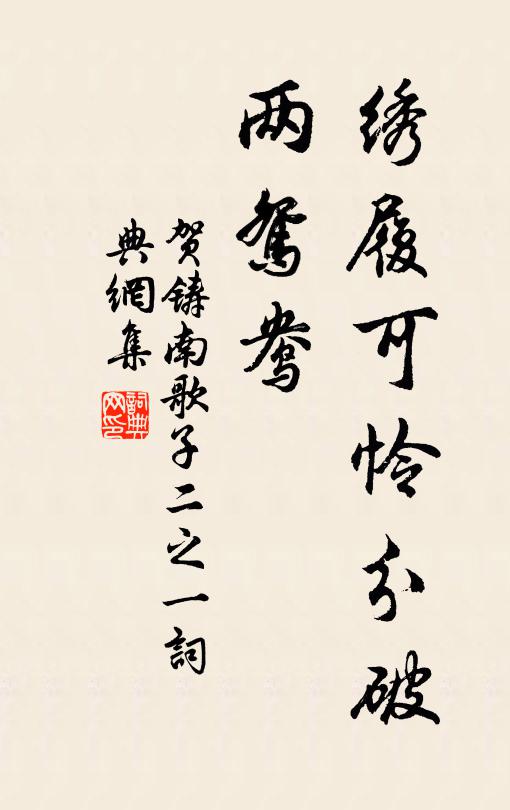 绣履可怜分破
两鸳鸯
贺铸南歌子二之一詞
典網集
詞典网印